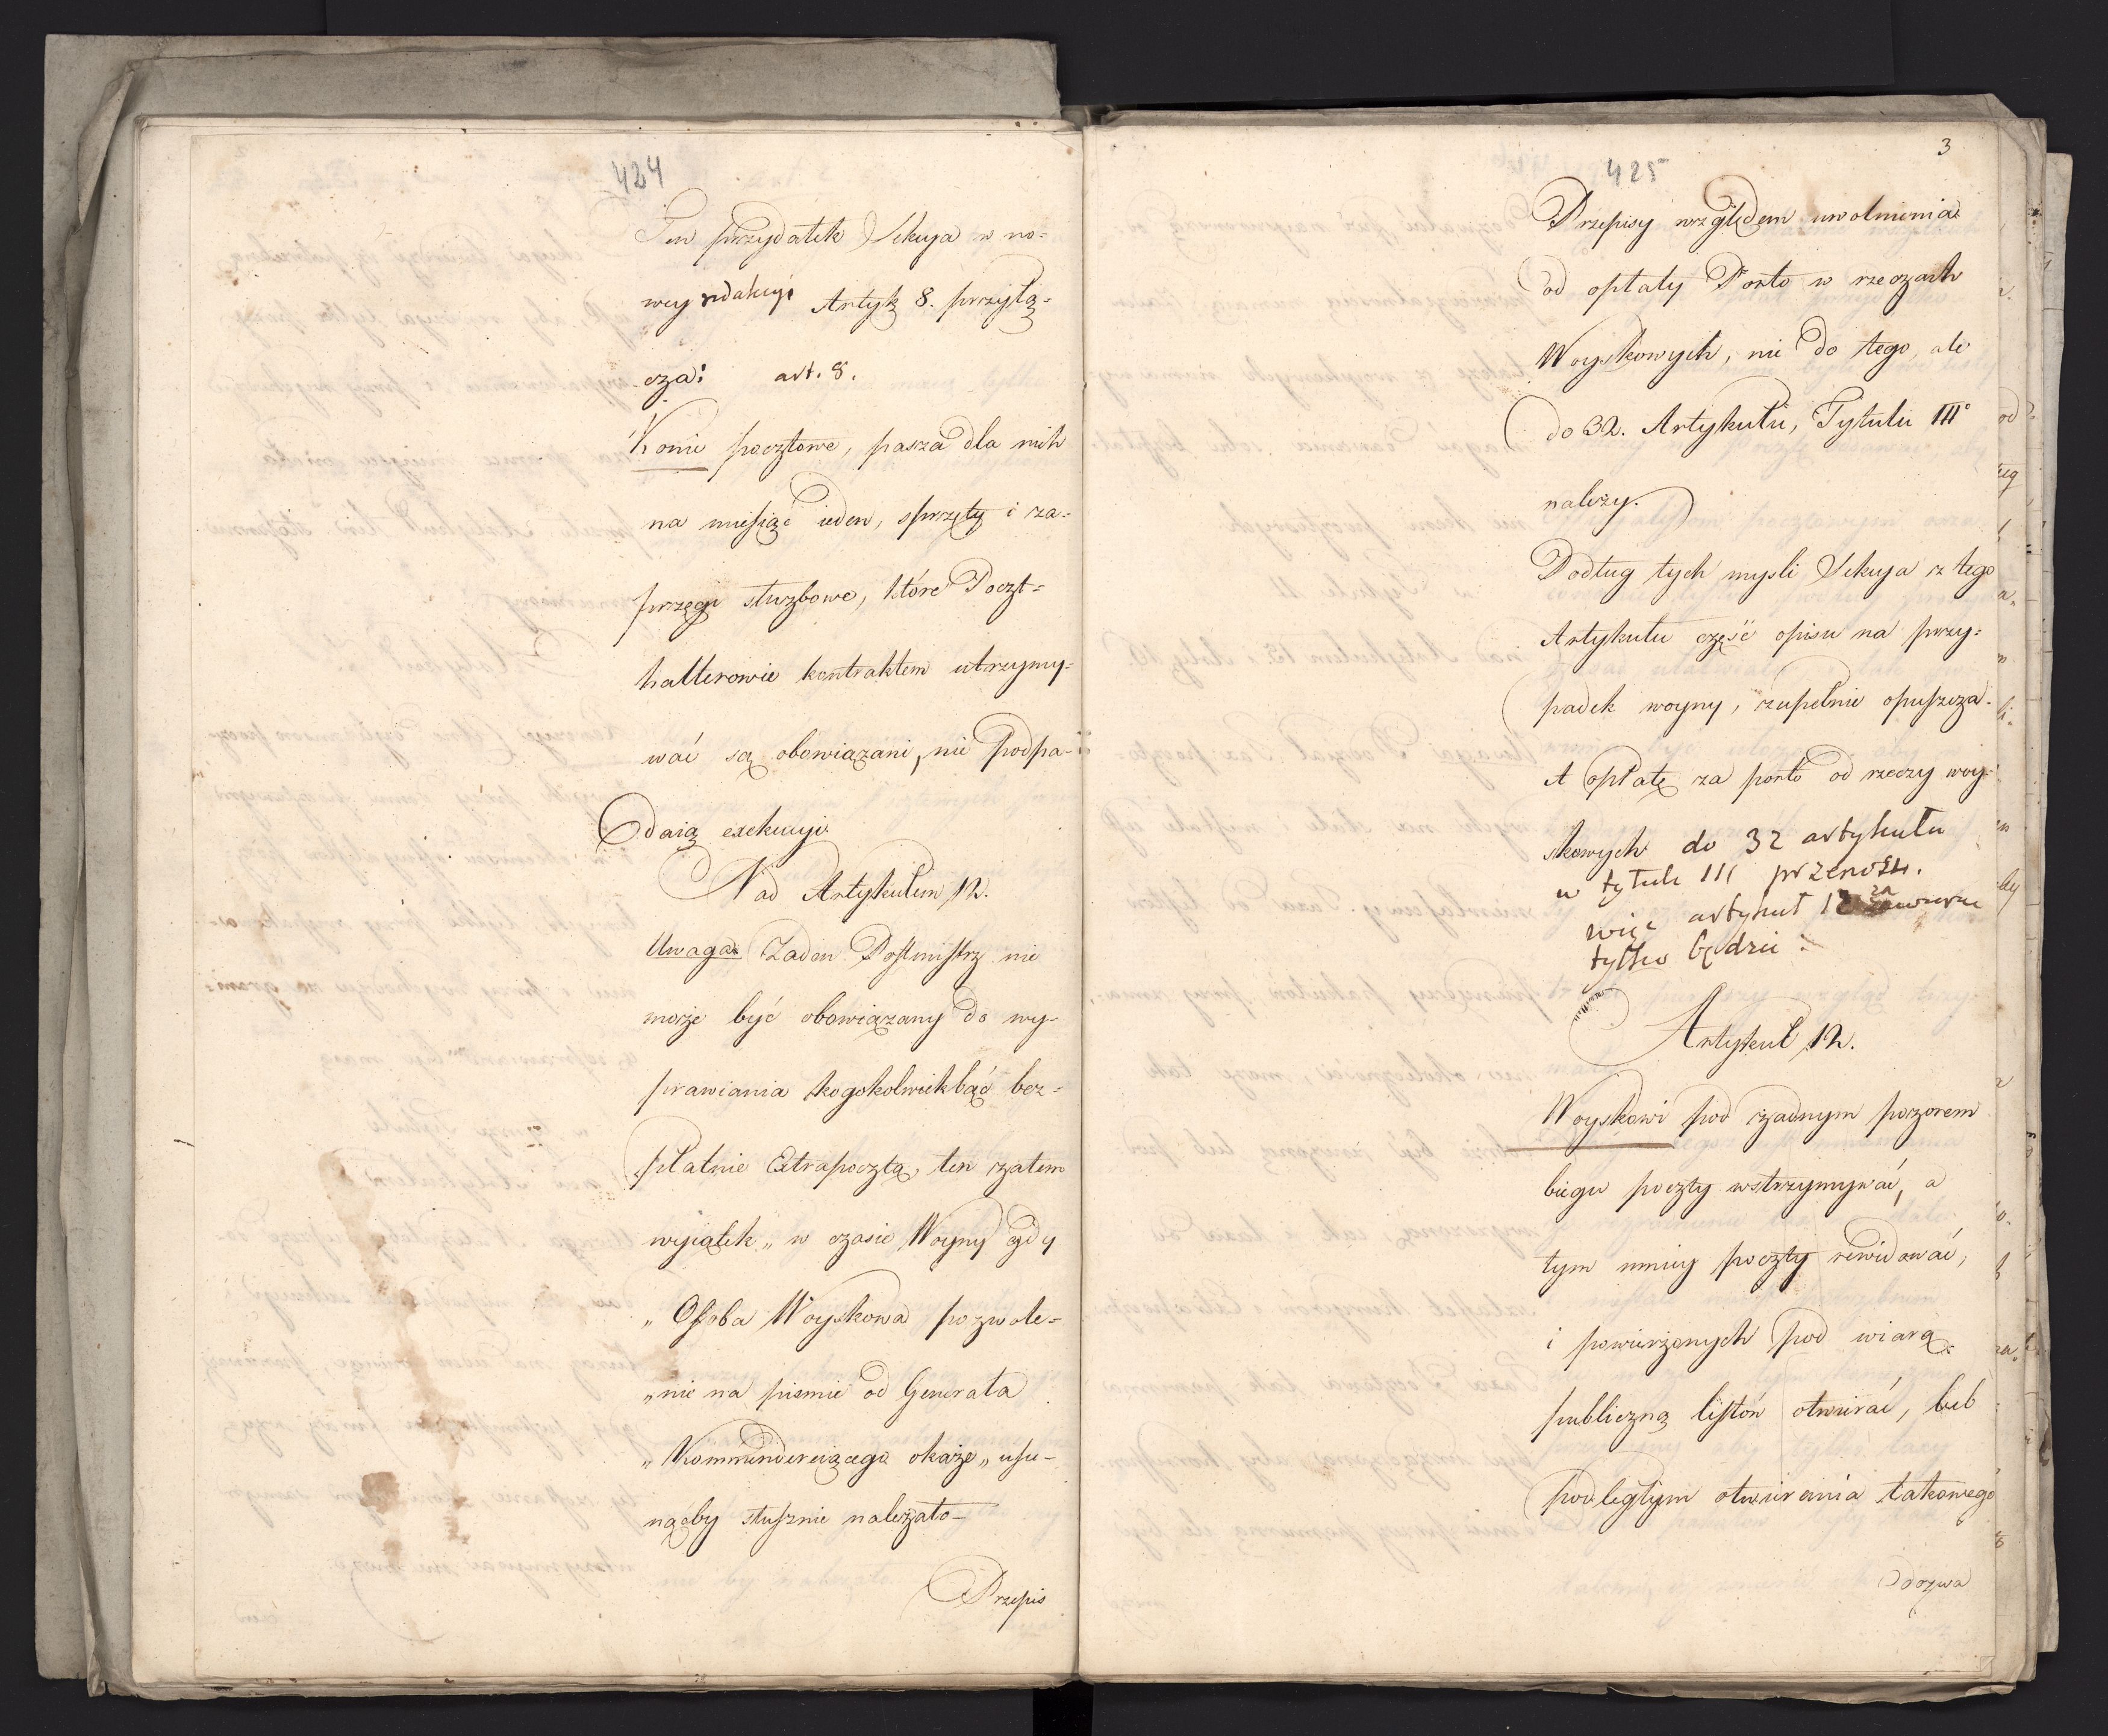 424
Ten przydatek Sekcya w no=
wey redakcyi Artyk 8. przyłą=
cza: art. 8.
Konie pocztowe, pasza dla nich
na miesiąc ieden, sprzęty i za=
przęgi służbowe, które Poczt=
halterowie kontraktem utrzymy=
wać są obowiązani, nie podpa-
daią exekucyi.
Nad Artykułem 12.
Uwaga Żaden Postmistrz nie
może być obowiązany do wy-
prawiania kogokolwiekbąć bez=
płatnie Extrapocztą, ten zatem
wyiątek „w czasie Woyny gdy
„Osoba Woyskowa pozwole=
„nie na pismie od Generała
„Kommenderuiącego okaże„ usu-
nąćby słusznie należało-
Przepis
3
425
Przepisy względem uwolnienia
od opłaty Porto w rzeczach
Woyskowych, nie do tego, ale
do 32. Artykułu, Tytułu III°
należy.
Podług tych mysli Sekcya z tego
Artykułu część opisu na przy=
padek woyny, zupełnie opuszcza.
A opłatę za porto od rzeczy woy=
skowych do 32 artykułu
w tytule III przenosi.
więc artykuł 12 za
tylko będzie :
Artykuł 12.
Woyskowi pod żadnym pozorem
biegu poczty wstrzymywać, a
tym mniey poczty rewidować,
i powierzonych pod wiarą
publiczną listów otwierać, lub
podległym otwierania takowego
Odozwa